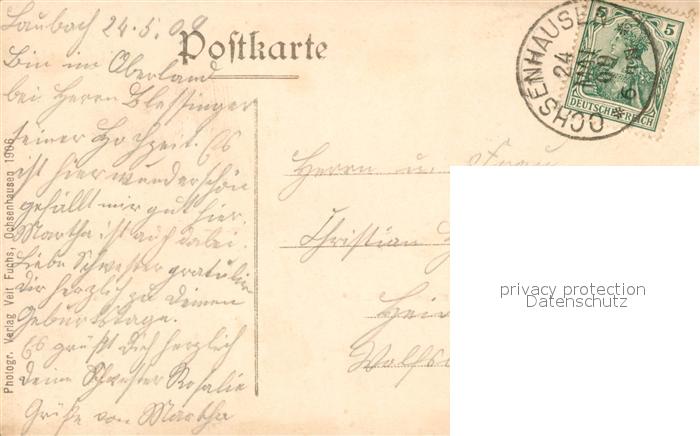 Laubach 24.5.09
Postkarte
Bin im Oberland
bei Herrn Blessinger
seiner Hochzeit. Es
ist hier wunderschön
gefällt mir gut hier.
Martha ist auch dabei.
Liebe Schwester gratulire
Dir herzlich zu Deinem
Geburtstage.
Es grüßt Dich herzlich
Deine Schwester Rosalie
Grüße von Martha
Photogr. Verlag Veit Fuchs, Ochsenhausen 1906
OCHSENHAUSEN
24 MAI 09
5 5
DEUTSCHES REICH
Herrn u. Frau
Christian
privacy protection
Datenschutz